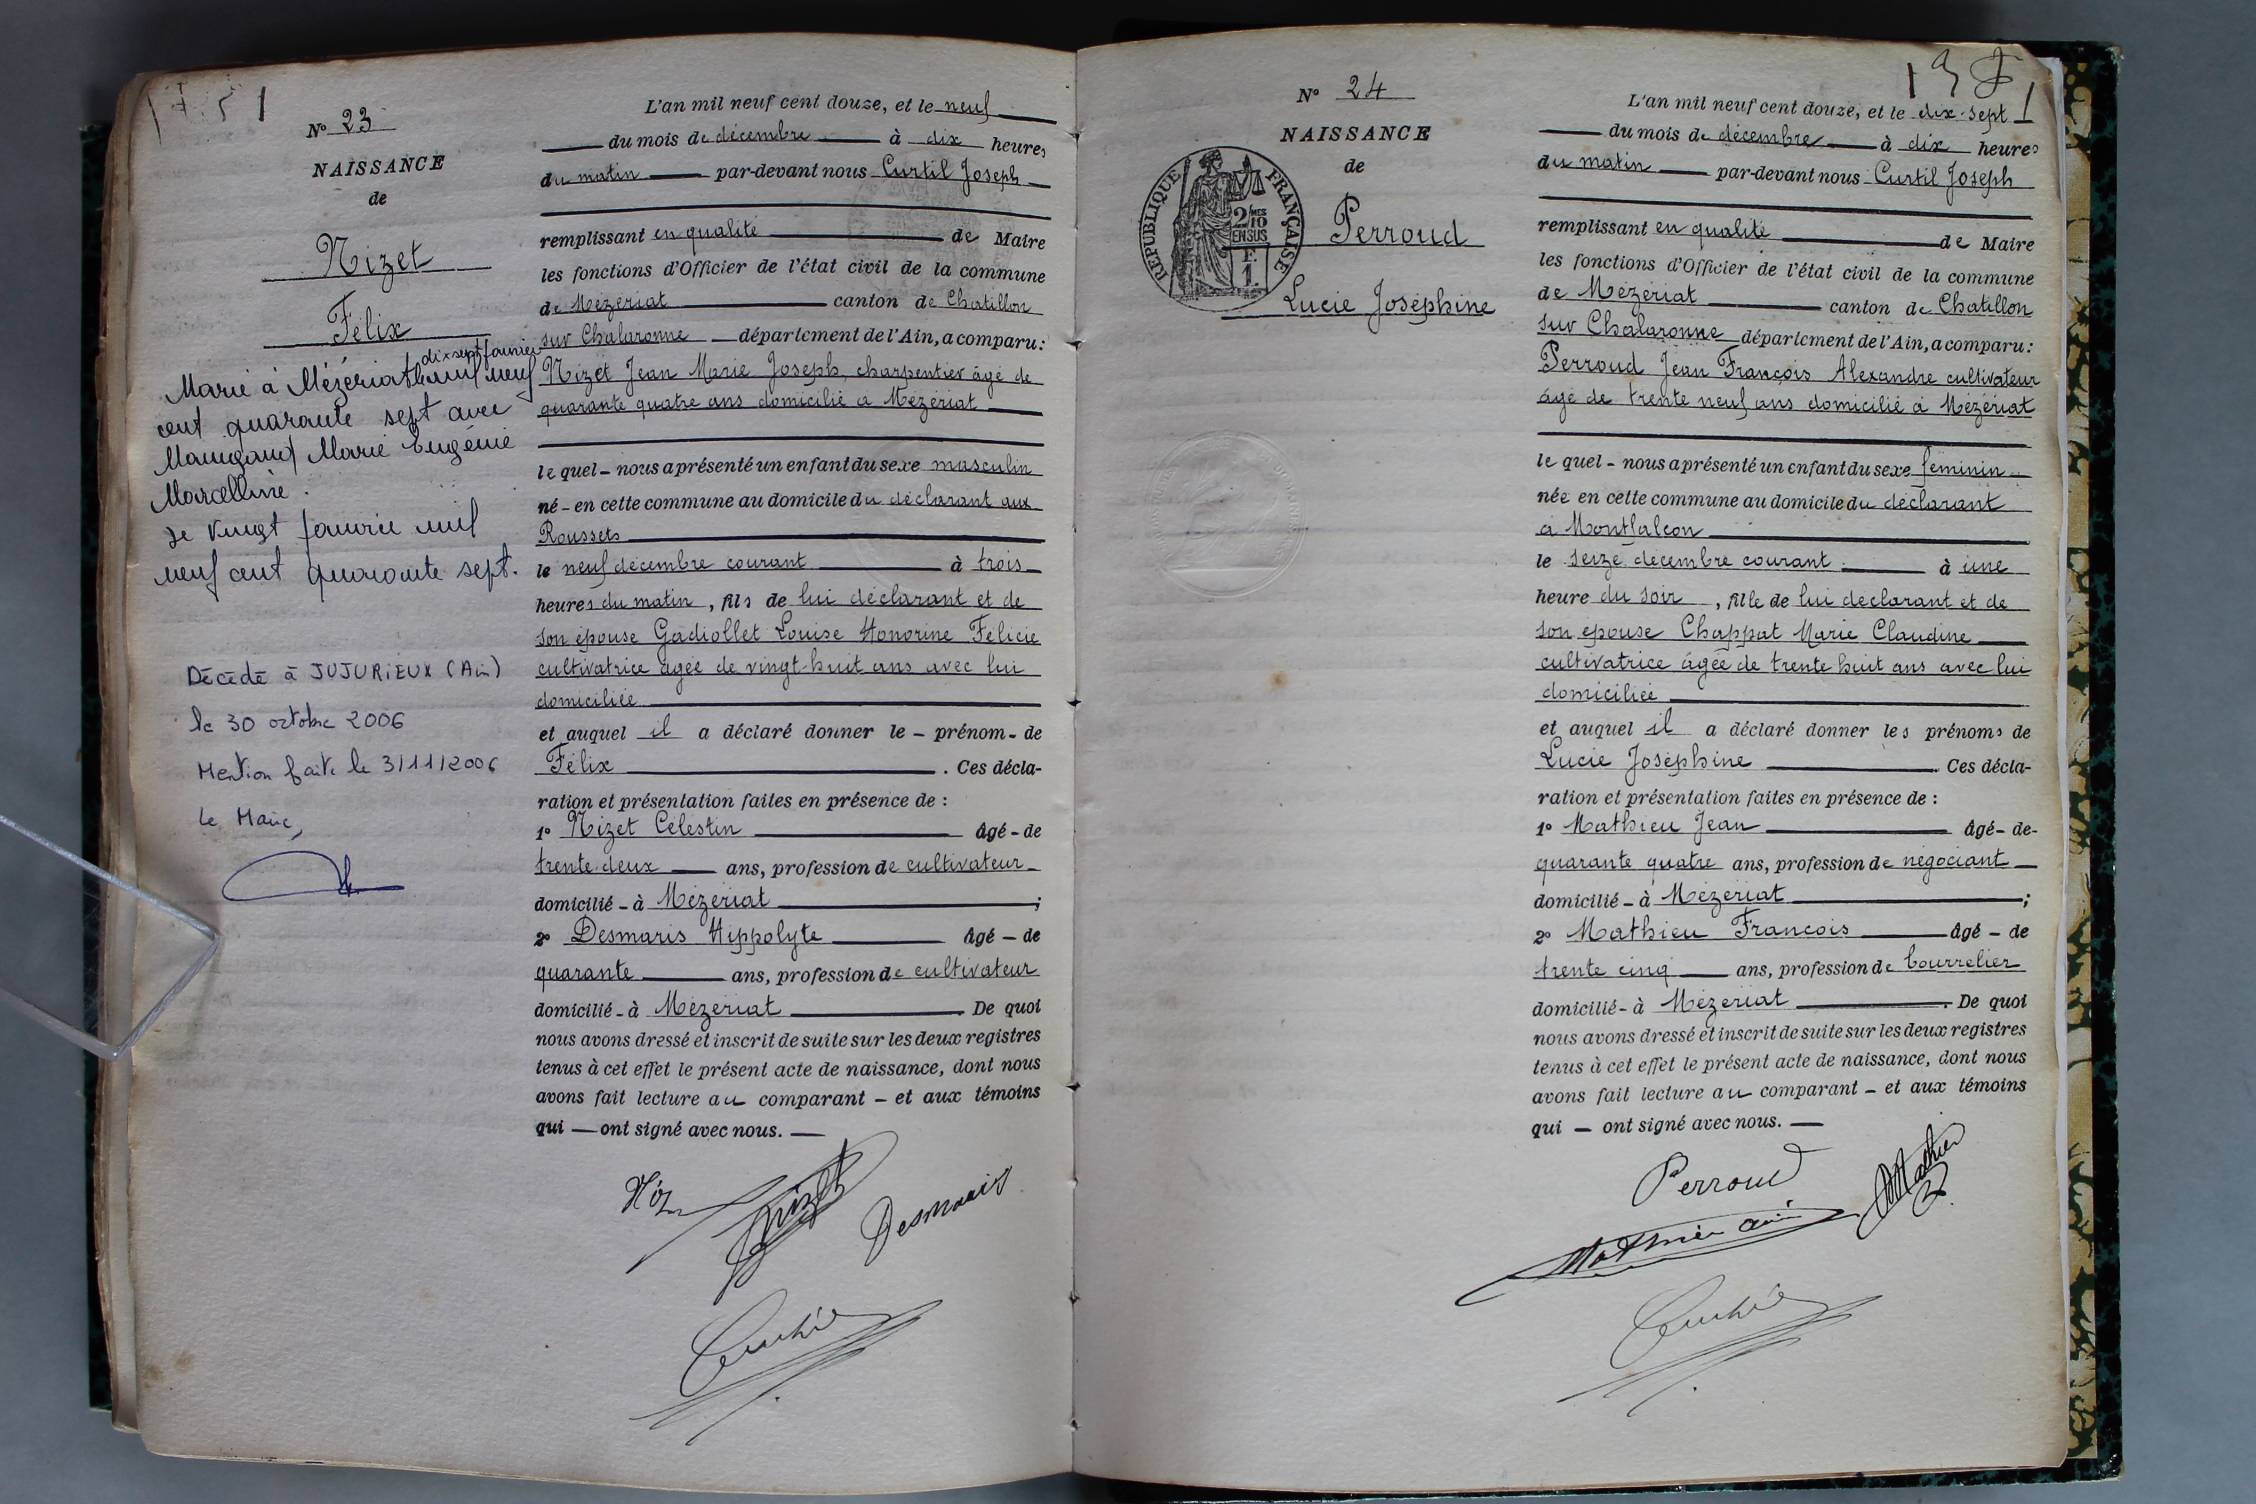 N° 23
NAISSANCE
de
Nizet
Félix
Marié à Mézériat le mil neuf
dix sept janvier
cent quarante sept avec
Marie Eugénie
Marcelline.
Le vingt janvier mil
neuf cent quarante sept.
Décédé à JUJURIEUX (Ain)
le 30 octobre 2006
Mention faite le 3/11/2006
le Maire,
L'an mil neuf cent douze, et le neuf
du mois de décembre à dix heures
du matin par-devant nous Curtil Joseph
remplissant en qualité de Maire
les fonctions d'Officier de l'état civil de la commune
de Mézériat canton de Chatillon
sur Chalaronne département de l'Ain, a comparu:
Nizet Jean Marie Joseph, charpentier âgé de
quarante quatre ans domicilié à Mézériat
le quel - nous a présenté un enfant du sexe masculin
né - en cette commune au domicile du déclarant aux
Roussets
le neuf décembre courant à trois
heures du matin, fils de lui déclarant et de
son épouse Gadiollet Louise Honorine Félicie
cultivatrice âgée de vingt-huit ans avec lui
domiciliée
et auquel il a déclaré donner le - prénom - de
Félix . Ces décla-
ration et présentation faites en présence de :
1° Nizet Célestin Agé - de
trente-deux ans, profession de cultivateur
domicilié - à Mézériat ;
2° Desmaris Hippolyte Agé - de
quarante ans, profession de cultivateur
domicilié - à Mézériat . De quoi
nous avons dressé et inscrit de suite sur les deux registres
tenus à cet effet le présent acte de naissance, dont nous
avons fait lecture au comparant - et aux témoins
qui — ont signé avec nous. —
Nizet Desmaris
N° 24
NAISSANCE
de
RÉPUBLIQUE FRANÇAISE
2/MES
10
EN SUS
F.
1.
Perroud
Lucie Joséphine
L'an mil neuf cent douze, et le dix-sept
du mois de décembre à dix heures
du matin par-devant nous Curtil Joseph
remplissant en qualité de Maire
les fonctions d'Officier de l'état civil de la commune
de Mézériat canton de Chatillon
sur Chalaronne département de l'Ain, a comparu:
Perroud Jean François Alexandre cultivateur
âgé de trente neuf ans domicilié à Mézériat
le quel - nous a présenté un enfant du sexe féminin
née en cette commune au domicile du déclarant
à Montfalcon
le seize décembre courant à une
heure du soir, fille de lui déclarant et de
son épouse Chappat Marie Claudine
cultivatrice âgée de trente huit ans avec lui
domiciliée
et auquel il a déclaré donner les prénoms de
Lucie Joséphine . Ces décla-
ration et présentation faites en présence de :
1° Mathieu Jean Agé - de -
quarante quatre ans, profession de négociant
domicilié - à Mézériat ;
2° Mathieu François Agé - de
trente cinq ans, profession de bourrelier
domicilié - à Mézériat . De quoi
nous avons dressé et inscrit de suite sur les deux registres
tenus à cet effet le présent acte de naissance, dont nous
avons fait lecture au comparant - et aux témoins
qui - ont signé avec nous. —
Perroud Mathieu
Mathieu ainé